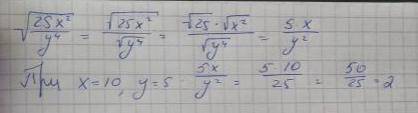 √(25x²/y⁴) = √(25x²)/√(y⁴) = √25 · √(x²)/√(y⁴) = 5 · x/y²
При x=10, y=5 · 5x/y² = 5 · 10/25 = 50/25 = 2